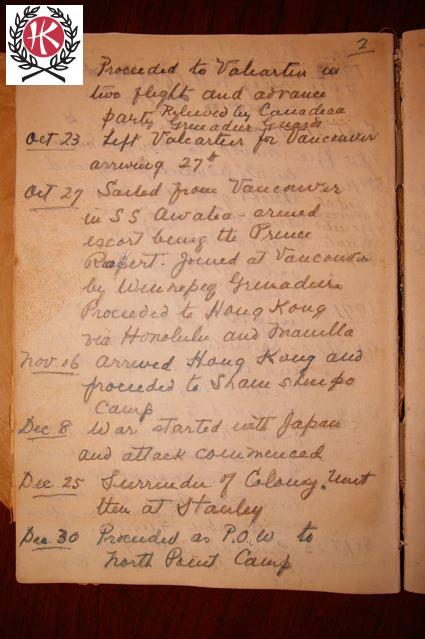 HK
2
Proceeded to Valcartier in
two flights and advance
party, Relieved by Canadian
Grenadier Guards
Oct 23. Left Valcartier for Vancouver
arriving 27th
Oct 27 Sailed from Vancouver
in S.S. Awatea - armed
escort being the Prince
Robert. Joined at Vancouver
by Winnepeg Grenadiers
Proceeded to Hong Kong
via Honolulu and Manilla
Nov. 16 arrived Hong Kong and
proceeded to Sham Shuipo
Camp
Dec 8 War started with Japan
and attack commenced
Dec 25 Surrender of Colony. Unit
then at Stanley
Dec 30 Proceeded as P.O.W to
North Point Camp